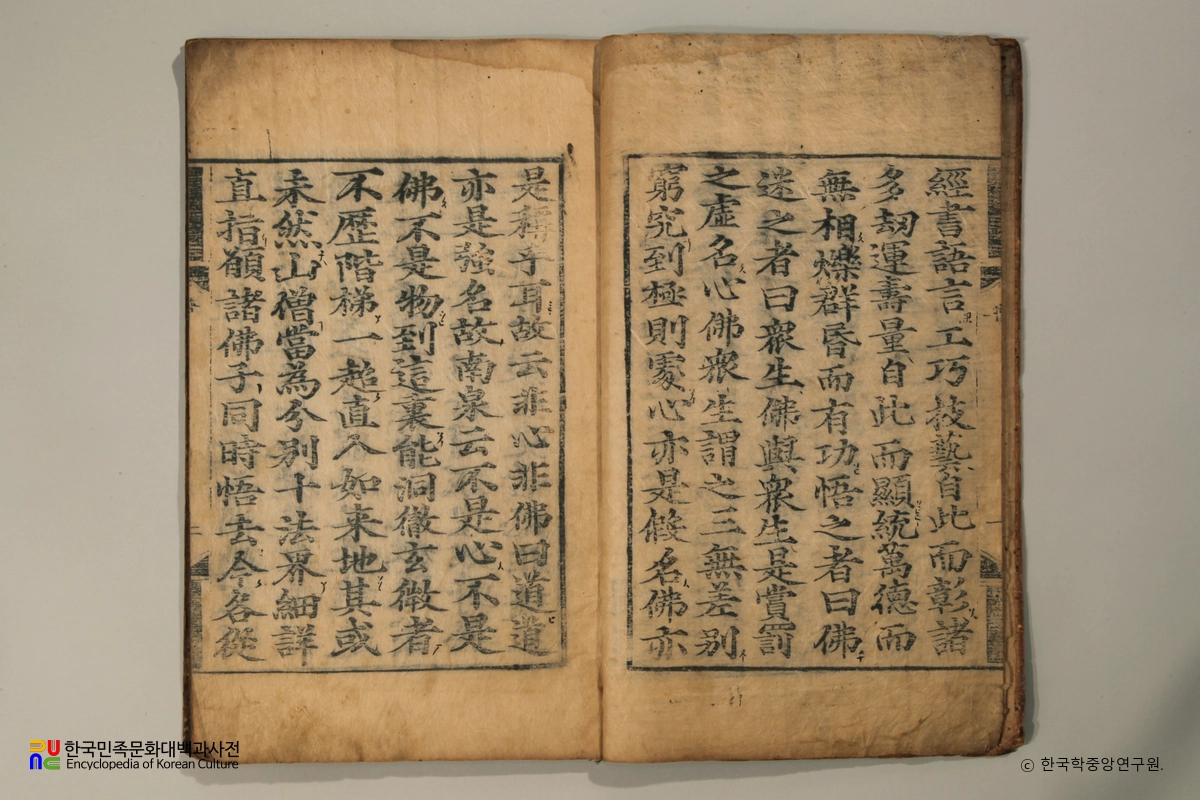 經書語言工巧技藝自此而彰諸
多劫運壽量自此而顯統萬德而
無相爍群昏而有功悟之者曰佛
迷之者曰衆生佛與衆生是賞罰
之虛名心佛衆生謂之三無差別
窮究到極則處心亦是假名佛亦
是 乎耳故云非心非佛曰道道
亦是強名故南泉云不是心不是
佛不是物到這裏能洞徹玄微者
不歷階梯一超直入如来地其或
未然山僧當為分別十法界細詳
直指願諸佛子同時悟去今各從
한국민족문화대백과사전
Encyclopedia of Korean Culture
ⓒ 한국학중앙연구원.